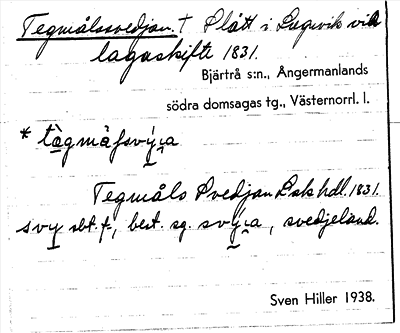 Tegmålssvedjan. † Slått i Lugnvik vid
lagaskifte 1831.
Bjärtrå s:n., Ångermanlands
södra domsagas tg., Västernorrl. l.
* tægmåḷsvýi̯a
Tegmåls Svedjan Lsk hdl. 1831.
svy sbt. f., best. sg. svýi̯a, svedjeland.
Sven Hiller 1938.